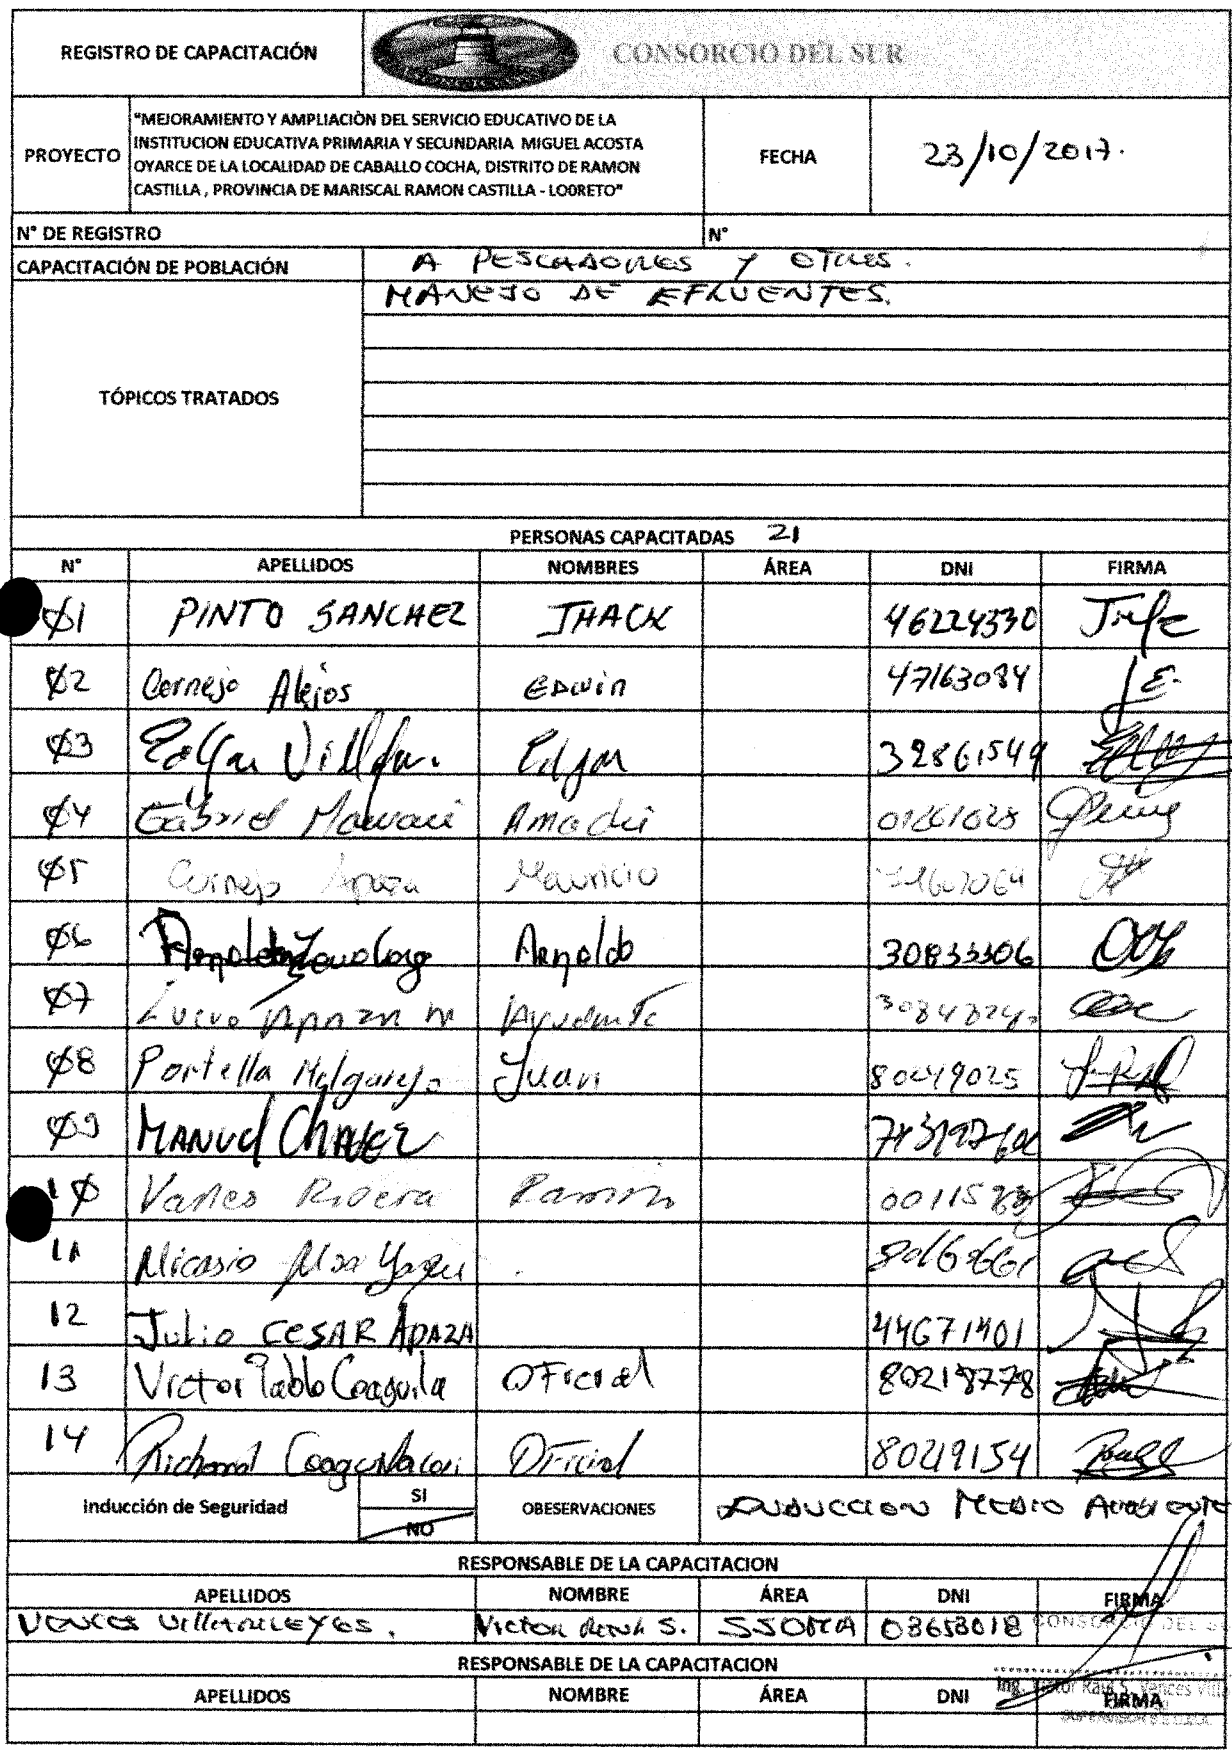 REGISTRO DE CAPACITACIÓN
CONSORCIO DEL SUR
PROYECTO
"MEJORAMIENTO Y AMPLIACIÒN DEL SERVICIO EDUCATIVO DE LA
INSTITUCION EDUCATIVA PRIMARIA Y SECUNDARIA MIGUEL ACOSTA
OYARCE DE LA LOCALIDAD DE CABALLO COCHA, DISTRITO DE RAMON
CASTILLA , PROVINCIA DE MARISCAL RAMON CASTILLA - LO0RETO"
FECHA 23/10/2017.
N° DE REGISTRO N°
CAPACITACIÓN DE POBLACIÓN A PESCADORES Y OTROS.
TÓPICOS TRATADOS MANEJO DE EFLUENTES.
PERSONAS CAPACITADAS 21
N° APELLIDOS NOMBRES ÁREA DNI FIRMA
01 PINTO SANCHEZ JHACK 46224330
02 Cornejo Alejos EDwin 47163084
03 Edgar Edgar 32861549
04 Gabriel Mamani
05 Cornejo Apaza Mauricio
06 Arnoldo 30833306
07
08 Portella Melgarejo Juan 80449025
09 MANUEL CHAVEZ
10 Rivera Ramón
11
12 Julio CESAR APAZA 44671401
13 Victor Pablo Coaguila OFicial 80218778
14 Richard OFicial 80219154
Inducción de Seguridad SI NO OBESERVACIONES INDUCCION MEDIO AMBIENTE
RESPONSABLE DE LA CAPACITACION
APELLIDOS NOMBRE ÁREA DNI FIRMA
VENCES VILLARREYES. VICTOR RAUL S. SSOMA 03658018
CONSORCIO DEL S
RESPONSABLE DE LA CAPACITACION
Ing. Victor Raúl S. Vences Villa
APELLIDOS NOMBRE ÁREA DNI FIRMA